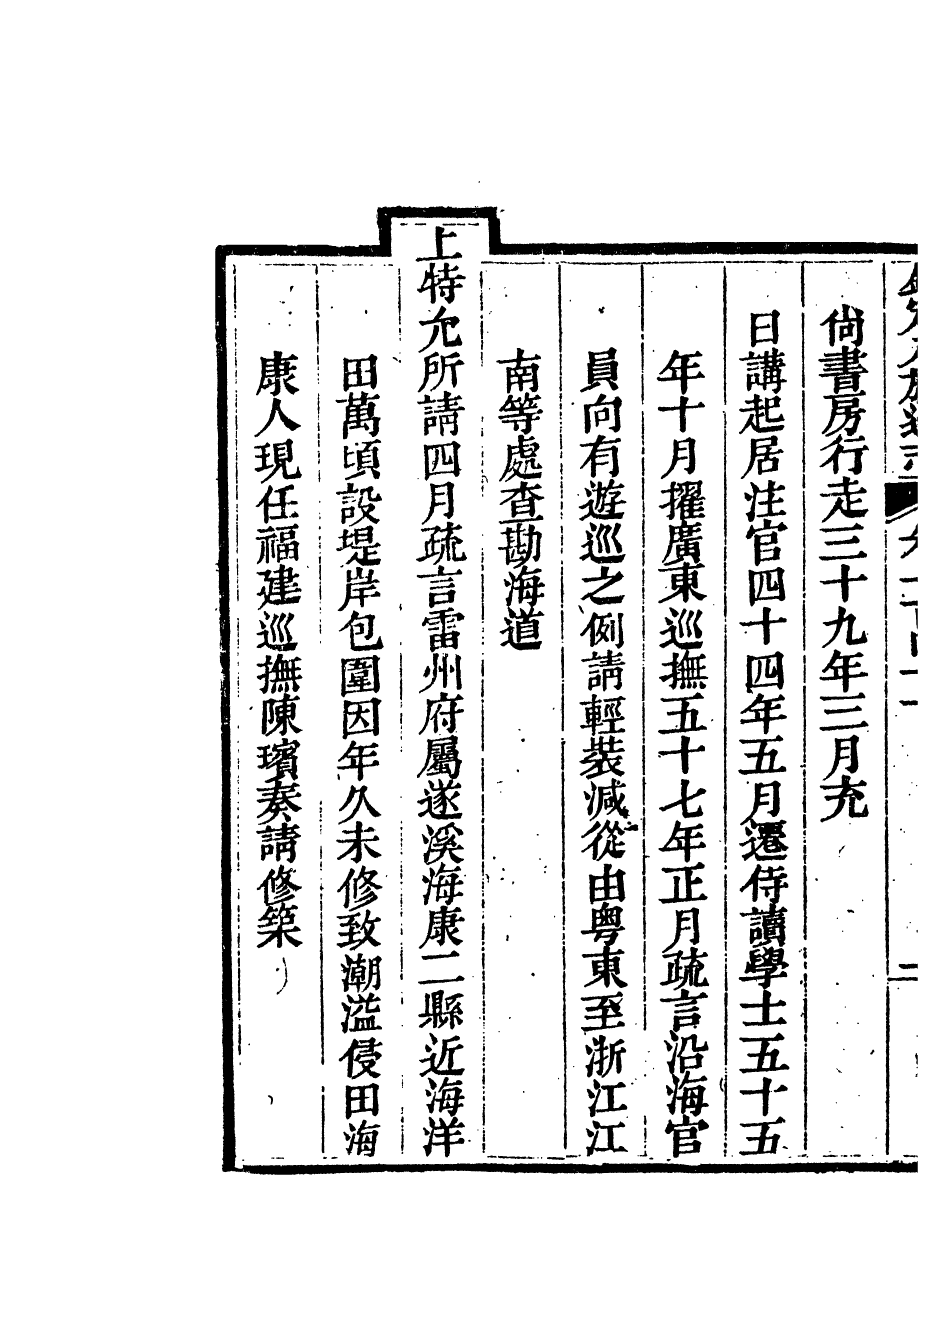 尚書房行走三十九年三月充
日講起居注官四十四年五月遷侍讀學士五十五
年十月擢廣東巡撫五十七年正月疏言沿海官
員向有遊巡之例請輕裝減從由粤東至浙江江
南等處查勘海道
上特允所請四月疏言雷州府屬遂溪海康二縣近海洋
田萬頃設堤岸包圍因年久未修致潮溢侵田海
康人現任福建巡撫陳璸奏請修築